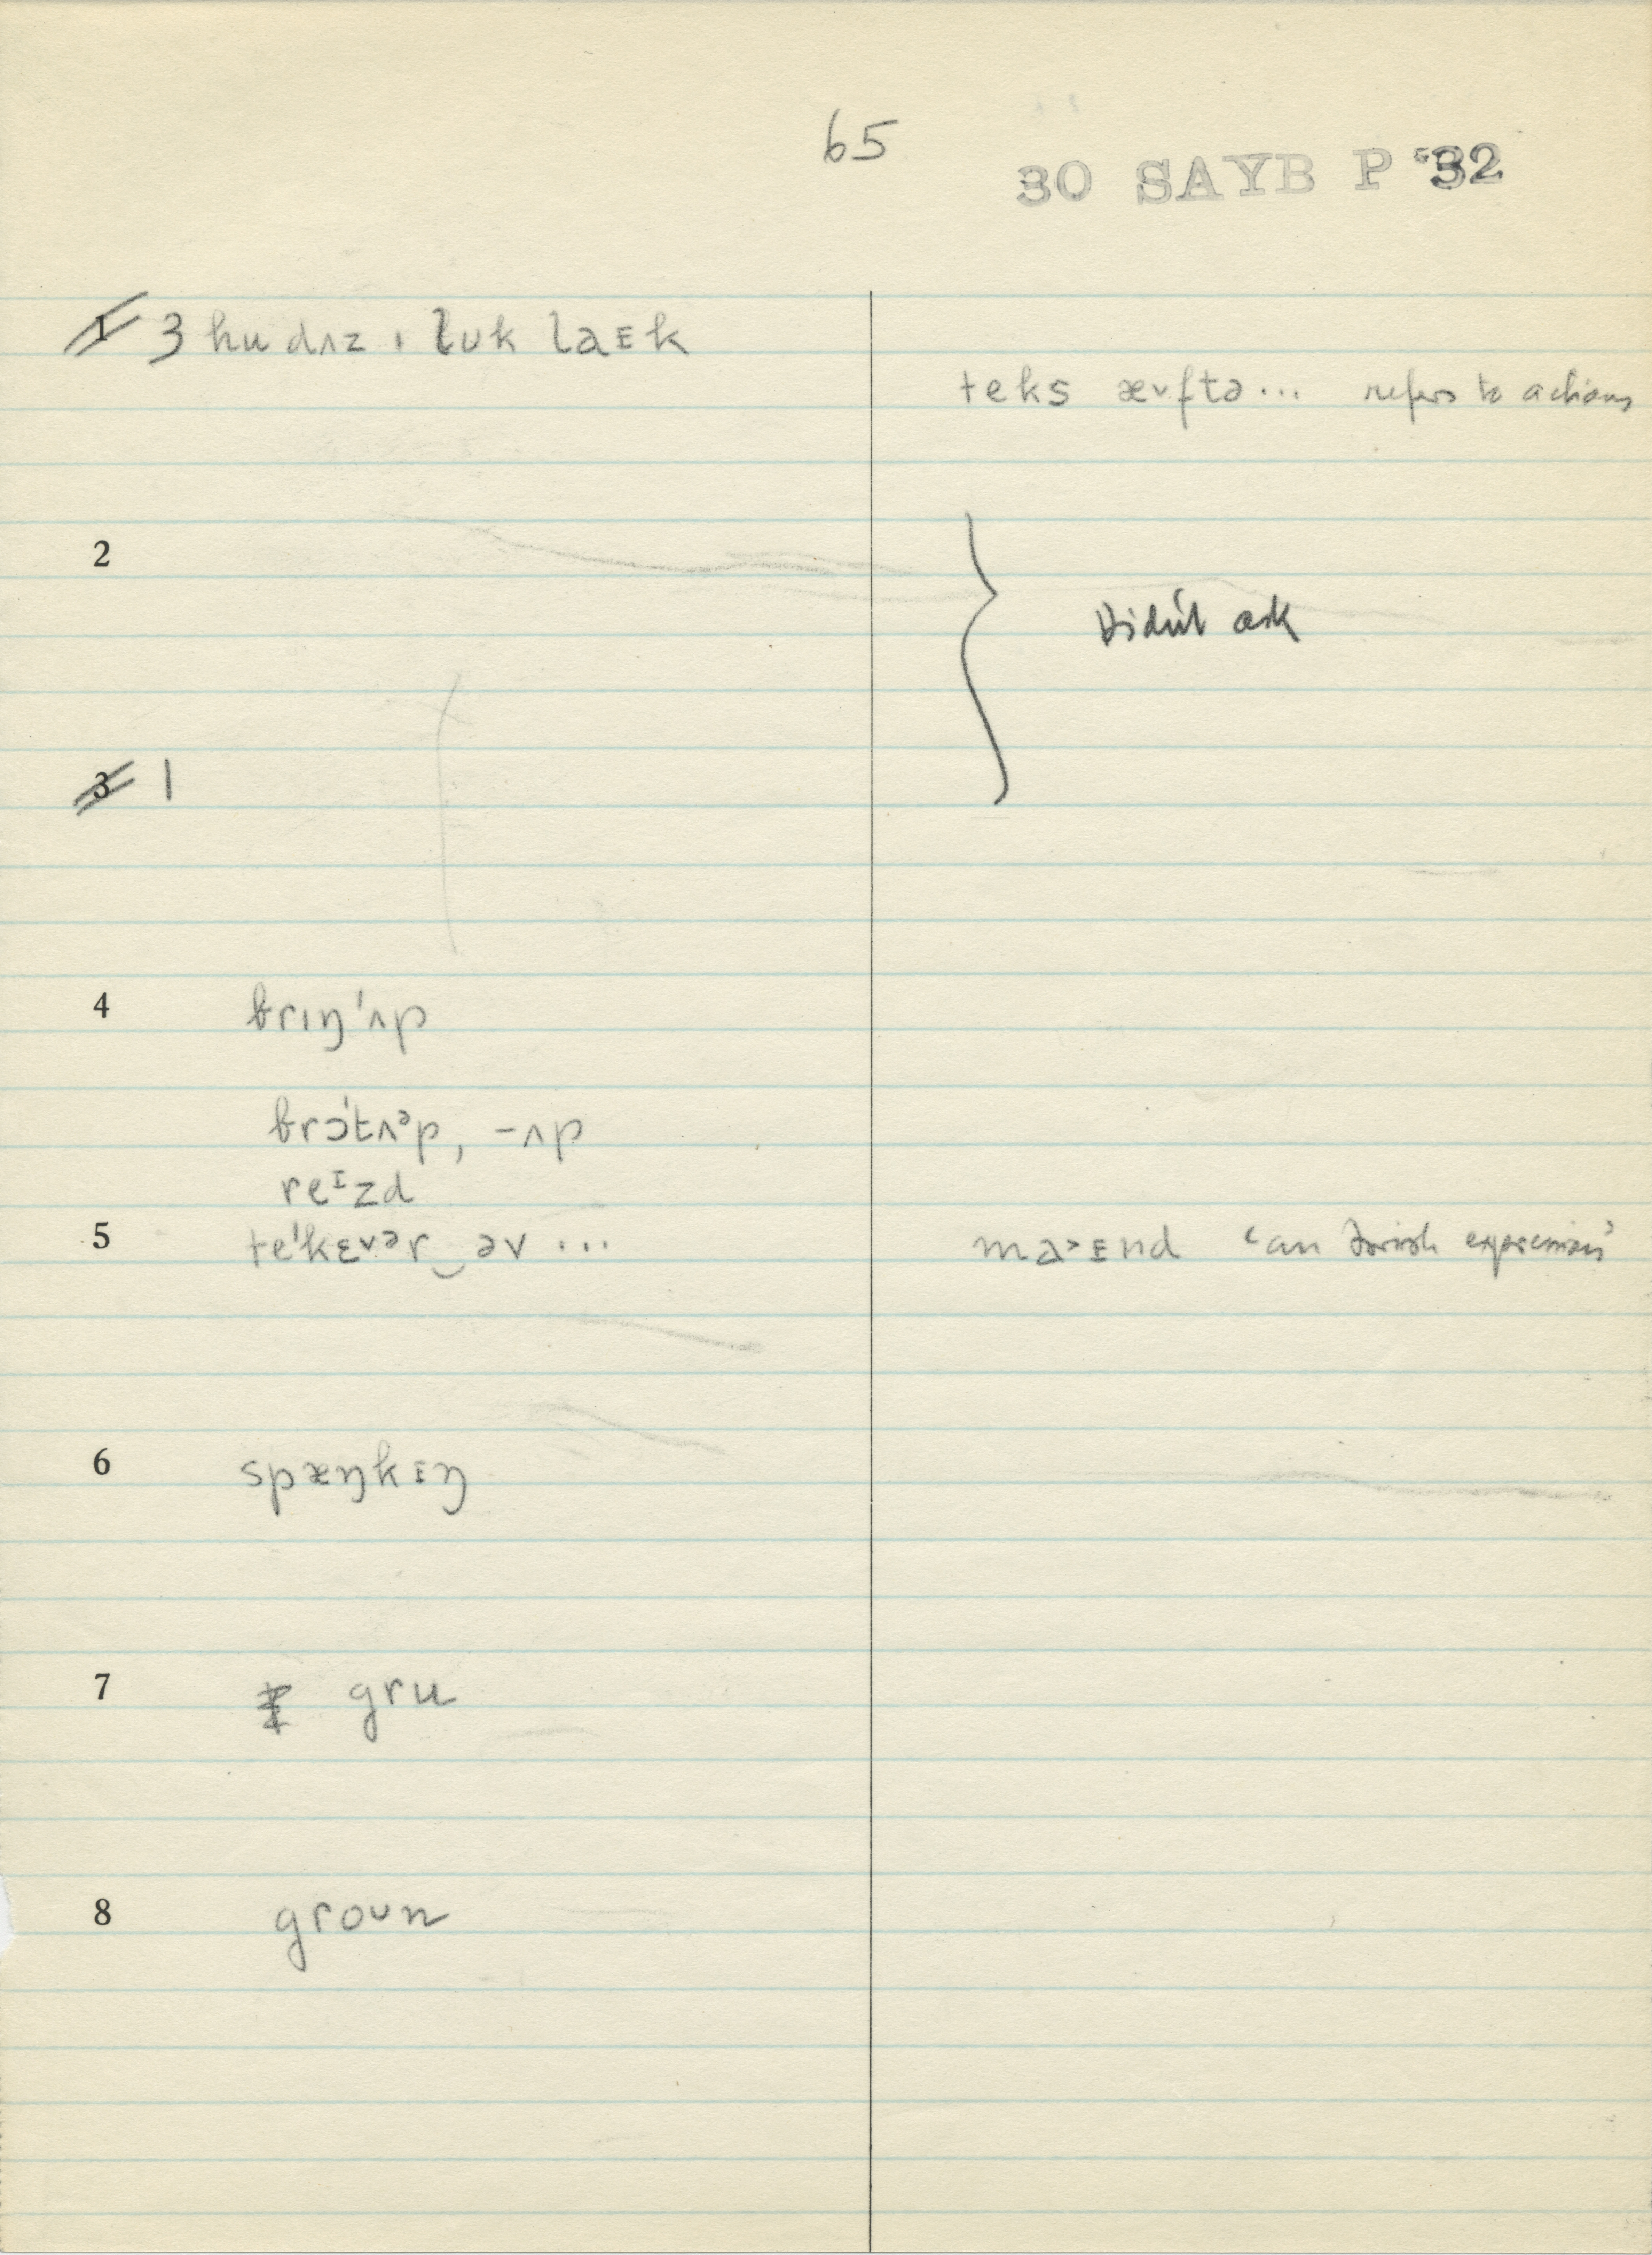 65
30 SAYB P 32
1 3 hu dʌz ɪ lʊk laᴇk
teks æᵛftə... refers to actions
2
Didn't ask
3 1
4 brɪŋ'ʌp
brɔ́tʌᵊp, -ʌp
reᴵzd
5 te'kɛᵛᵊr‿əv ...
ma˃ᴇnd 'an Irish expression'
6 spæŋkɪŋ
7 gru
8 groʊn